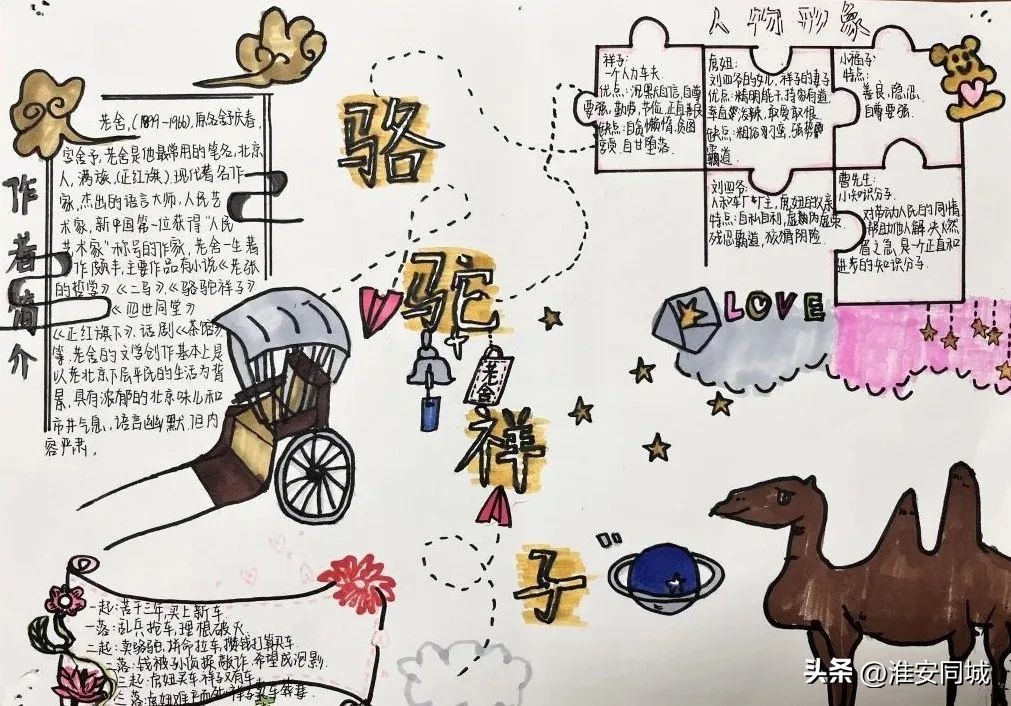 骆
驼
祥
子
老舍
作者简介
老舍，(1899-1966)，原名舒庆春，
字舍予，老舍是他最常用的笔名，北京
人，满族，(正红旗)现代著名作
家，杰出的语言大师，人民艺
术家，新中国第一位获得“人民
艺术家”称号的作家，老舍一生著
作颇丰，主要作品有小说《老张
的哲学》《二马》《骆驼祥子》
《四世同堂》
《正红旗下》、话剧《茶馆》
等，老舍的文学创作基本上是
以老北京下层平民的生活为背
景，具有浓郁的北京味儿和
市井气息，语言幽默，但内
容严肃。
一起：苦干三年，买上新车
一落：乱兵抢车，理想破灭
二起：卖骆驼，拼命拉车，攒钱打算买车
二落：钱被孙侦探敲诈，希望成泡影
三起：虎妞买车，祥子又有车
三落：虎妞难产而死，祥子卖车葬妻
人物形象
祥子：
一个人力车夫
优点：沉默自信，自尊
要强，勤劳，节俭，正直善良
缺点：自私懒惰，贪图
享受，自甘堕落
虎妞：
刘四爷的女儿，祥子的妻子
优点：精明能干，持家有道，
率直泼辣，敢爱敢恨
缺点：粗俗刁蛮，
霸道
小福子：
特点：
善良，隐忍
自尊要强
刘四爷：
人和车厂厂主，虎妞的父亲
特点：自私自利，
残忍霸道，阴险
曹先生：
小知识分子
对劳动人民的同情
帮助他人解决燃
眉之急，是一个正直和
进步的知识分子
LOVE
头条 @淮安同城